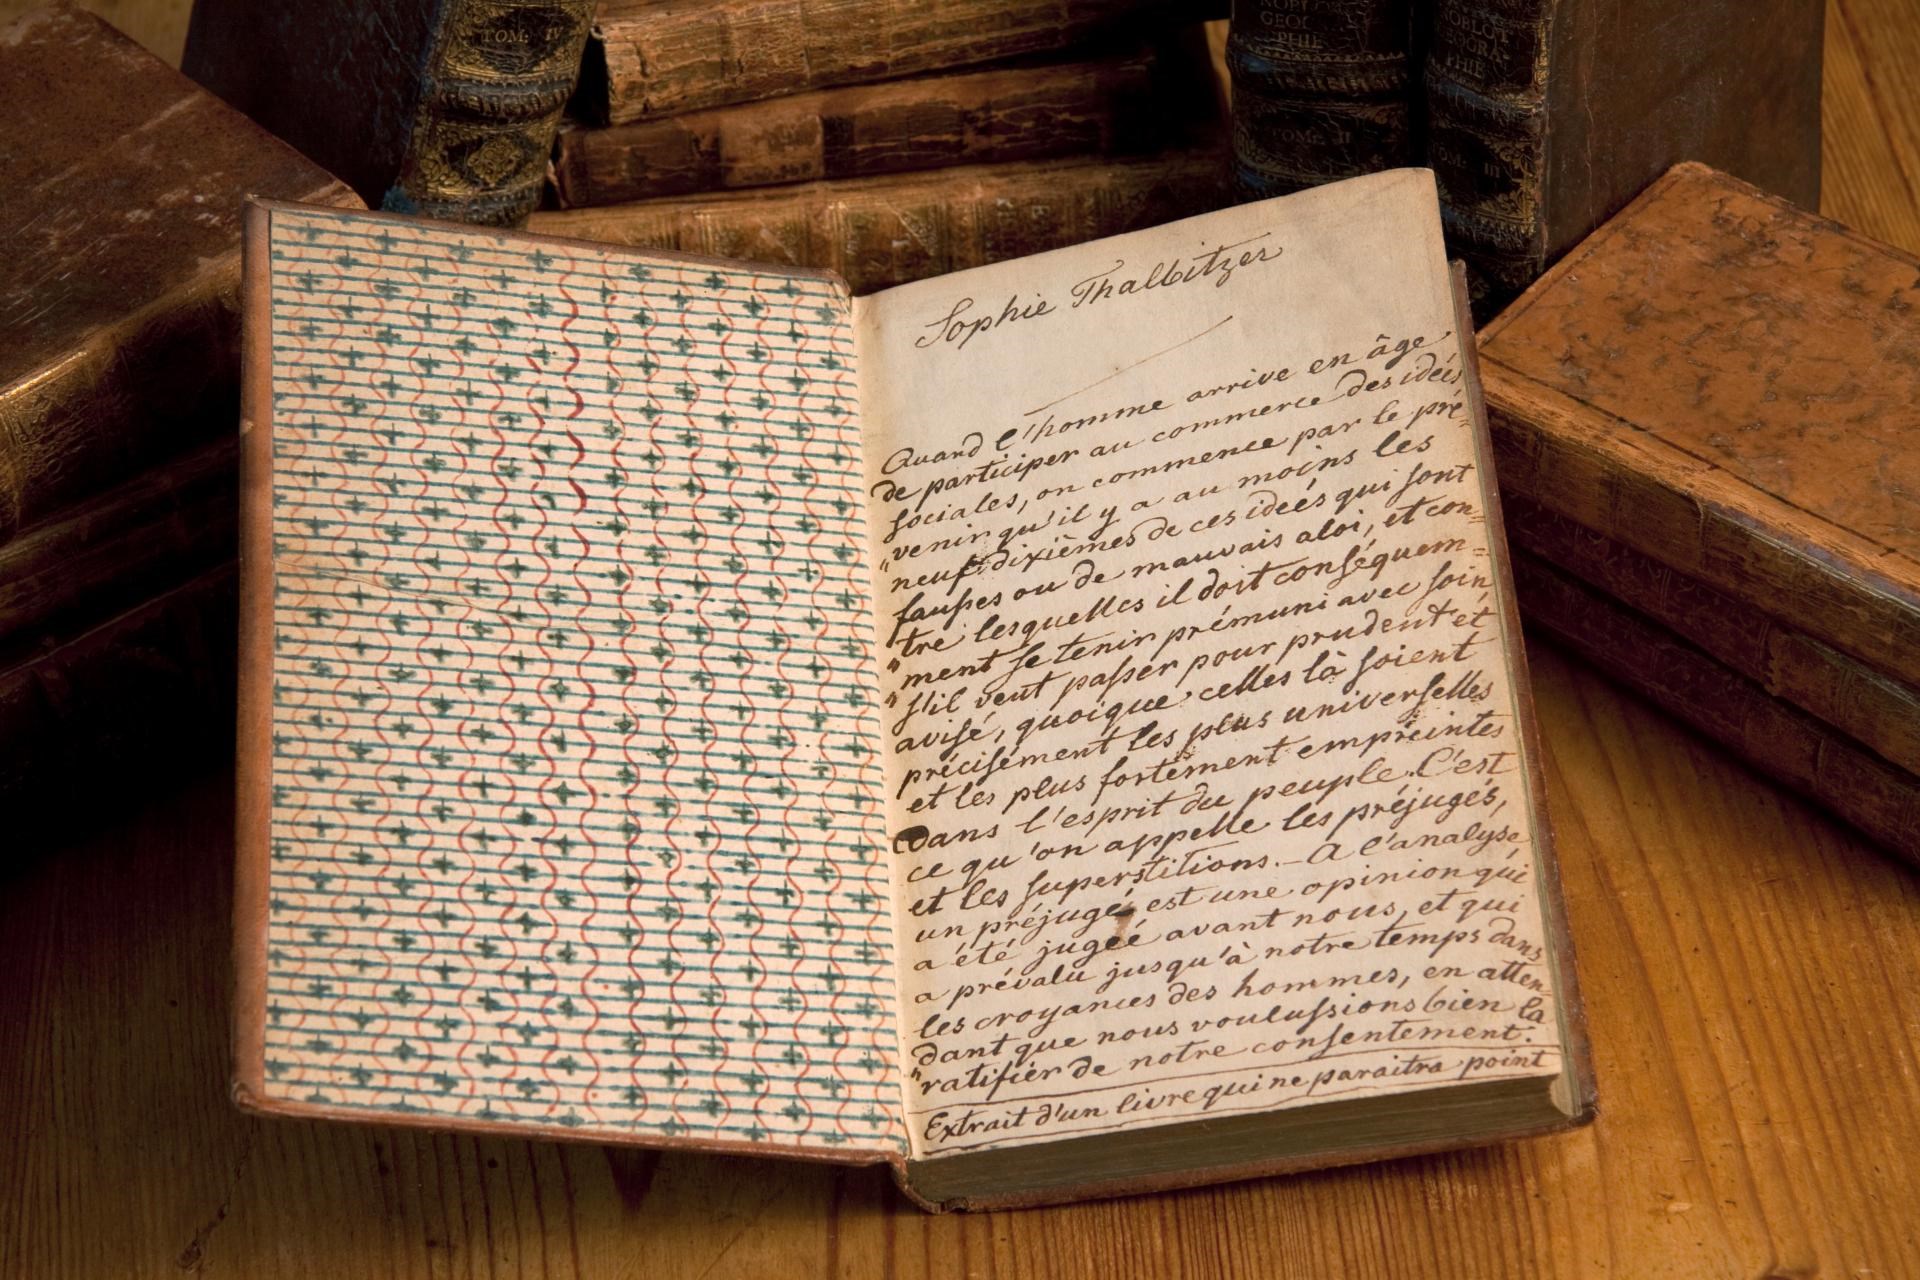 TOM: IV
GEOG
PHIE
TOM: II
NOBLOT
GEOGRA-
PHIE
TOM: III
Sophie Thalbitzer
Quand l'homme arrive en âge
de participer au commerce des idées
sociales, on commence par le pré=
"venir qu'il y a au moins les
neuf dixièmes de ces idées qui sont
fausses ou de mauvais aloi, et con=
"tre lesquelles il doit conséquem=
"ment se tenir prémuni avec soin,
"s'il veut passer pour prudent et
avisé, quoique celles là soient
précisément les plus universelles
et les plus fortement empreintes
dans l'esprit du peuple. C'est
ce qu'on appelle les préjugés,
et les superstitions. – A l'analyse
un préjugé est une opinion qui
a été jugée avant nous, et qui
a prévalu jusqu'à notre temps dans
les croyances des hommes, en atten
dant que nous voulussions bien la
"ratifier de notre consentement."
Extrait d'un livre qui ne paraitra point